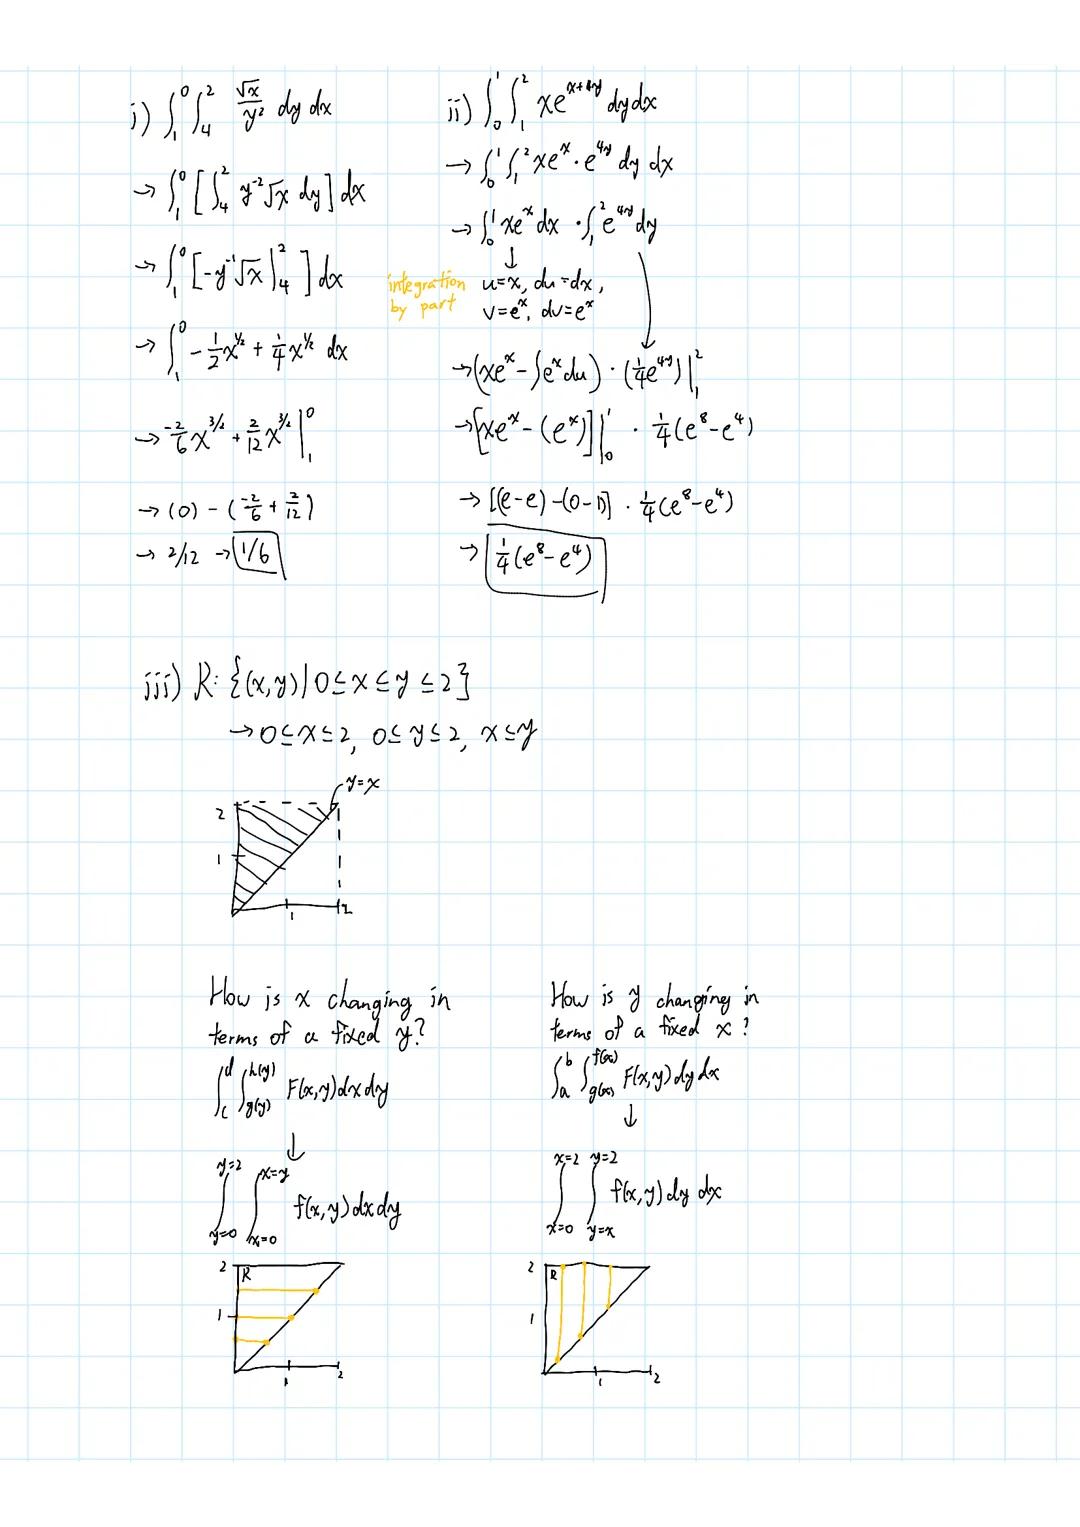 i) ∫₁⁰ ∫₄² √x/y² dy dx
→ ∫₁⁰ [∫₄² y⁻²√x dy] dx
→ ∫₁⁰ [-y⁻¹√x |₄²] dx
→ ∫₁⁰ -1/2 x^1/2 + 1/4 x^1/2 dx
→ -2/6 x^3/2 + 2/12 x^3/2 |₁⁰
→ (0) - (-2/6 + 2/12)
→ 2/12 → 1/6
ii) ∫₀¹ ∫₁² xe^(x+4y) dydx
→ ∫₀¹ ∫₁² xe^x · e^4y dy dx
→ ∫₀¹ xe^x dx · ∫₁² e^4y dy
↓
integration by part
u=x, du=dx,
v=e^x, dv=e^x
→ (xe^x - ∫e^x du) · (1/4 e^4y) |₁²
→ [xe^x - (e^x)] |₀¹ · 1/4 (e⁸-e⁴)
→ [(e-e) - (0-1)] · 1/4 (e⁸-e⁴)
→ 1/4 (e⁸-e⁴)
iii) R: {(x,y) | 0≤x≤y≤2}
→ 0≤x≤2, 0≤y≤2, x≤y
y=x
2
1
1 2
How is x changing in
terms of a fixed y?
∫_c^d ∫_g(y)^h(y) F(x,y) dx dy
↓
∫_y=0^y=2 ∫_x=0^x=y f(x,y) dx dy
2 R
1
1 2
How is y changing in
terms of a fixed x?
∫_a^b ∫_g(x)^f(x) F(x,y) dy dx
↓
∫_x=0^x=2 ∫_y=x^y=2 f(x,y) dy dx
2 R
1
1 2